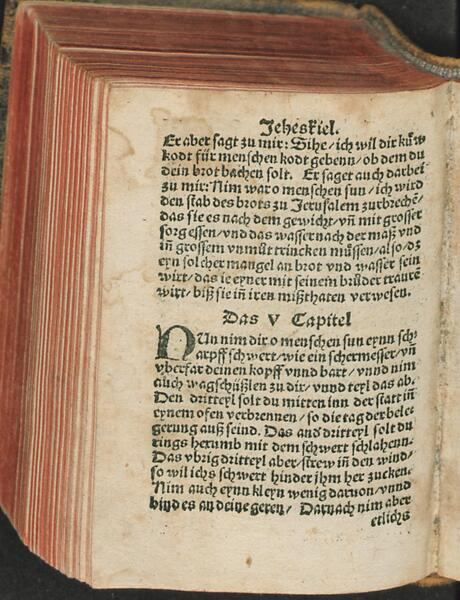 Jeheskiel.
Er aber sagt zu mir: Sihe / ich wil dir kuͤw
kodt für menschen kodt gebenn / ob dem du
dein brot bachen solt. Er saget auch darbei
zu mir: Nim war o menschen sun / ich wird
den stab des brots zu Jerusalem zurbrechē /
das sie es nach dem gewicht / vñ mit grosser
sorg essen / vnd das wasser nach der maß vnd
iñ grossem vnmůt trincken müssen / also / dz
eyn solcher mangel an brot vnd wasser sein
wirt / das ie eyner mit seinem brůder traurē
wirt / biß sie in iren mißthaten verwesen.
Das V Capitel
NUn nim dir o menschen sun eynn sch
arpff schwert / wie ein schermesser / vñ
vberfar deinen kopff vnnd bart / vnnd nim
auch wagschüßlen zu dir / vnnd teyl das ab.
Den dritteyl solt du mitten inn der statt iñ
eynem ofen verbrennen / so die tag der bele
gerung auß seind. Das and dritteyl solt du
rings herumb mit dem schwert schlahenn.
Das vbrig dritteyl aber / strew iñ den wind /
so wil ichs schwert hinder jhm her zucken.
Nim auch eynn kleyn wenig daruon / vnnd
bind es an deine geren / Darnach nim aber
etlichs